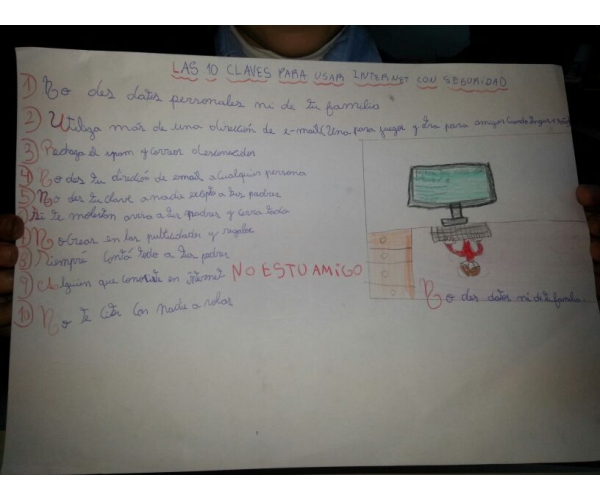 LAS 10 CLAVES PARA USAR INTERNET CON SEGURIDAD
1) No des datos personales ni de tu familia
2) Utiliza más de una dirección de e-mail. Una para juegos y otra para amigos
3) Rechaza el spam y correos desconocidos
4) No des tu dirección de email a cualquier persona
5) No des tu clave a nadie excepto a tus padres
6) Si te molestan avisa a tus padres y cierra todo
7) No creas en las publicidades y regalos
8) Siempre contá todo a tus padres
9) Alguien que conociste en internet NO ES TU AMIGO
10) No te cites con nadie a solas
No des datos ni de tu familia